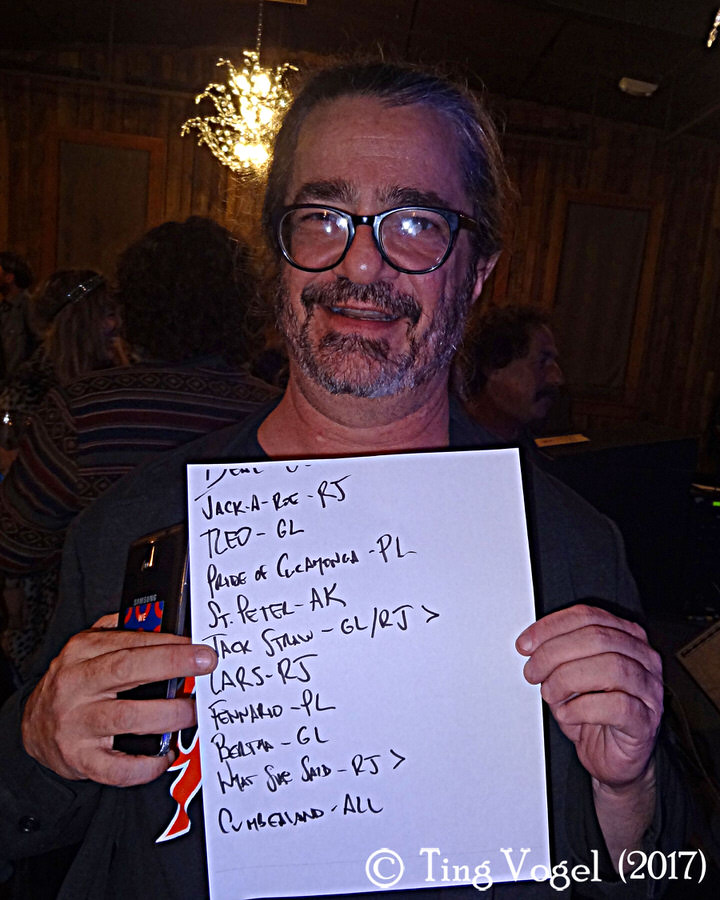 DEAL
JACK-A-ROE - RJ
TLEO - GL
PRIDE OF CUCAMONGA - PL
ST. PETER - AK
JACK STRAW - GL/RJ >
CARS - RJ
FENNARIO - PL
BERTHA - GL
WHAT SHE SAID - RJ >
CUMBERLAND - ALL
SAMSUNG
WE
© Ting Vogel (2017)